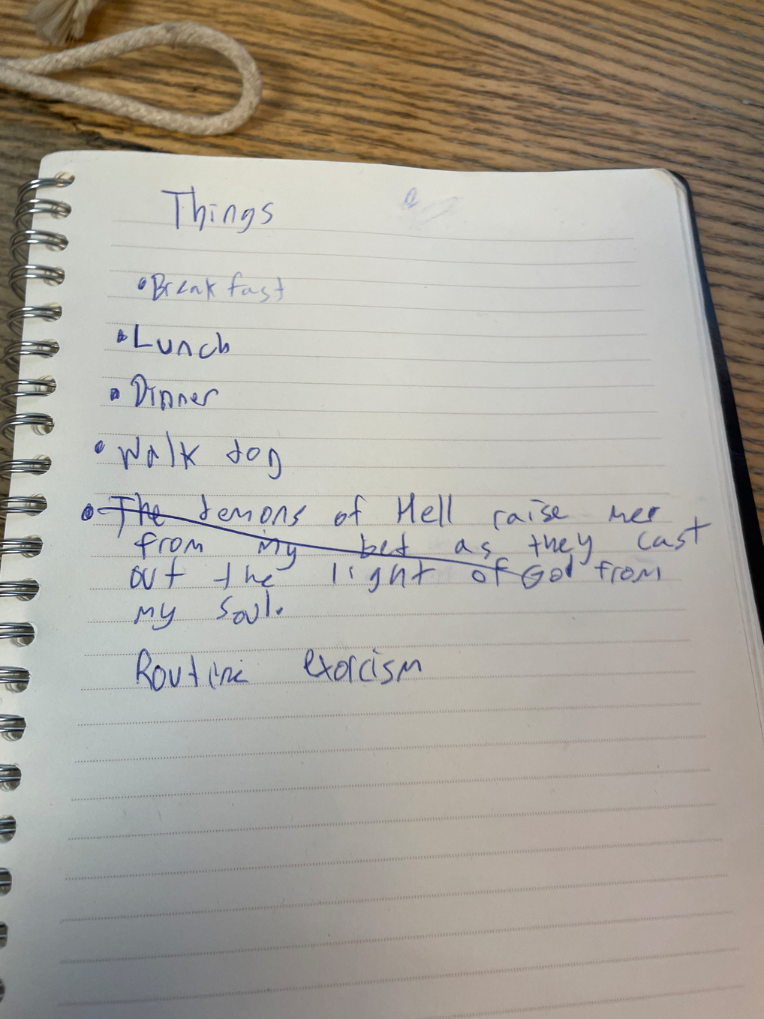 Things
• Breakfast
• Lunch
• Dinner
• Walk dog
• The demons of Hell raise mee
from my bed as they cast
out the light of God from
my soul.
Routine exorcism